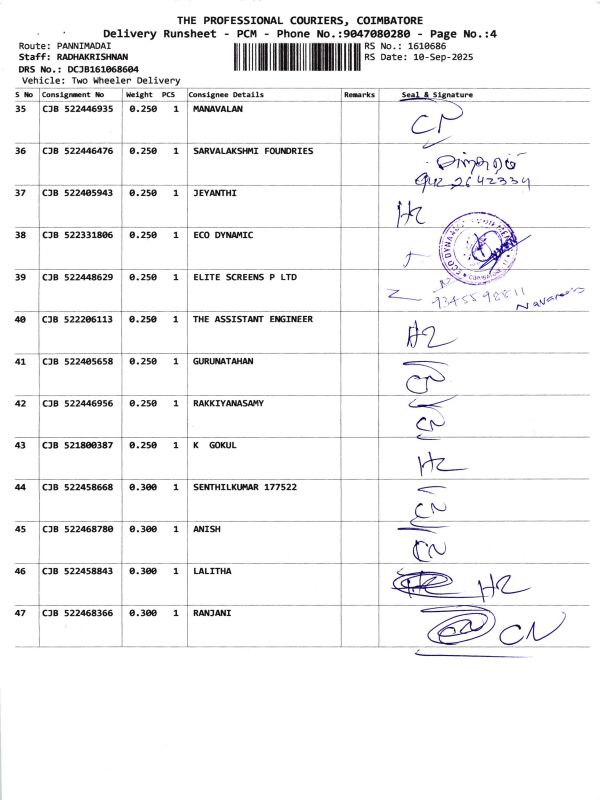 THE PROFESSIONAL COURIERS, COIMBATORE
Delivery Runsheet - PCM - Phone No.:9047080280 - Page No.:4
Route: PANNIMADAI RS No.: 1610686
Staff: RADHAKRISHNAN RS Date: 10-Sep-2025
DRS No.: DCJB161068604
Vehicle: Two Wheeler Delivery
S No Consignment No Weight PCS Consignee Details Remarks Seal & Signature
35 CJB 522446935 0.250 1 MANAVALAN CN
36 CJB 522446476 0.250 1 SARVALAKSHMI FOUNDRIES
37 CJB 522405943 0.250 1 JEYANTHI HZ
38 CJB 522331806 0.250 1 ECO DYNAMIC
39 CJB 522448629 0.250 1 ELITE SCREENS P LTD
40 CJB 522206113 0.250 1 THE ASSISTANT ENGINEER HZ
41 CJB 522405658 0.250 1 GURUNATAHAN CN
42 CJB 522446956 0.250 1 RAKKIYANASAMY CN
43 CJB 521800387 0.250 1 K GOKUL HZ
44 CJB 522458668 0.300 1 SENTHILKUMAR 177522 CN
45 CJB 522468780 0.300 1 ANISH CN
46 CJB 522458843 0.300 1 LALITHA HZ
47 CJB 522468366 0.300 1 RANJANI CN